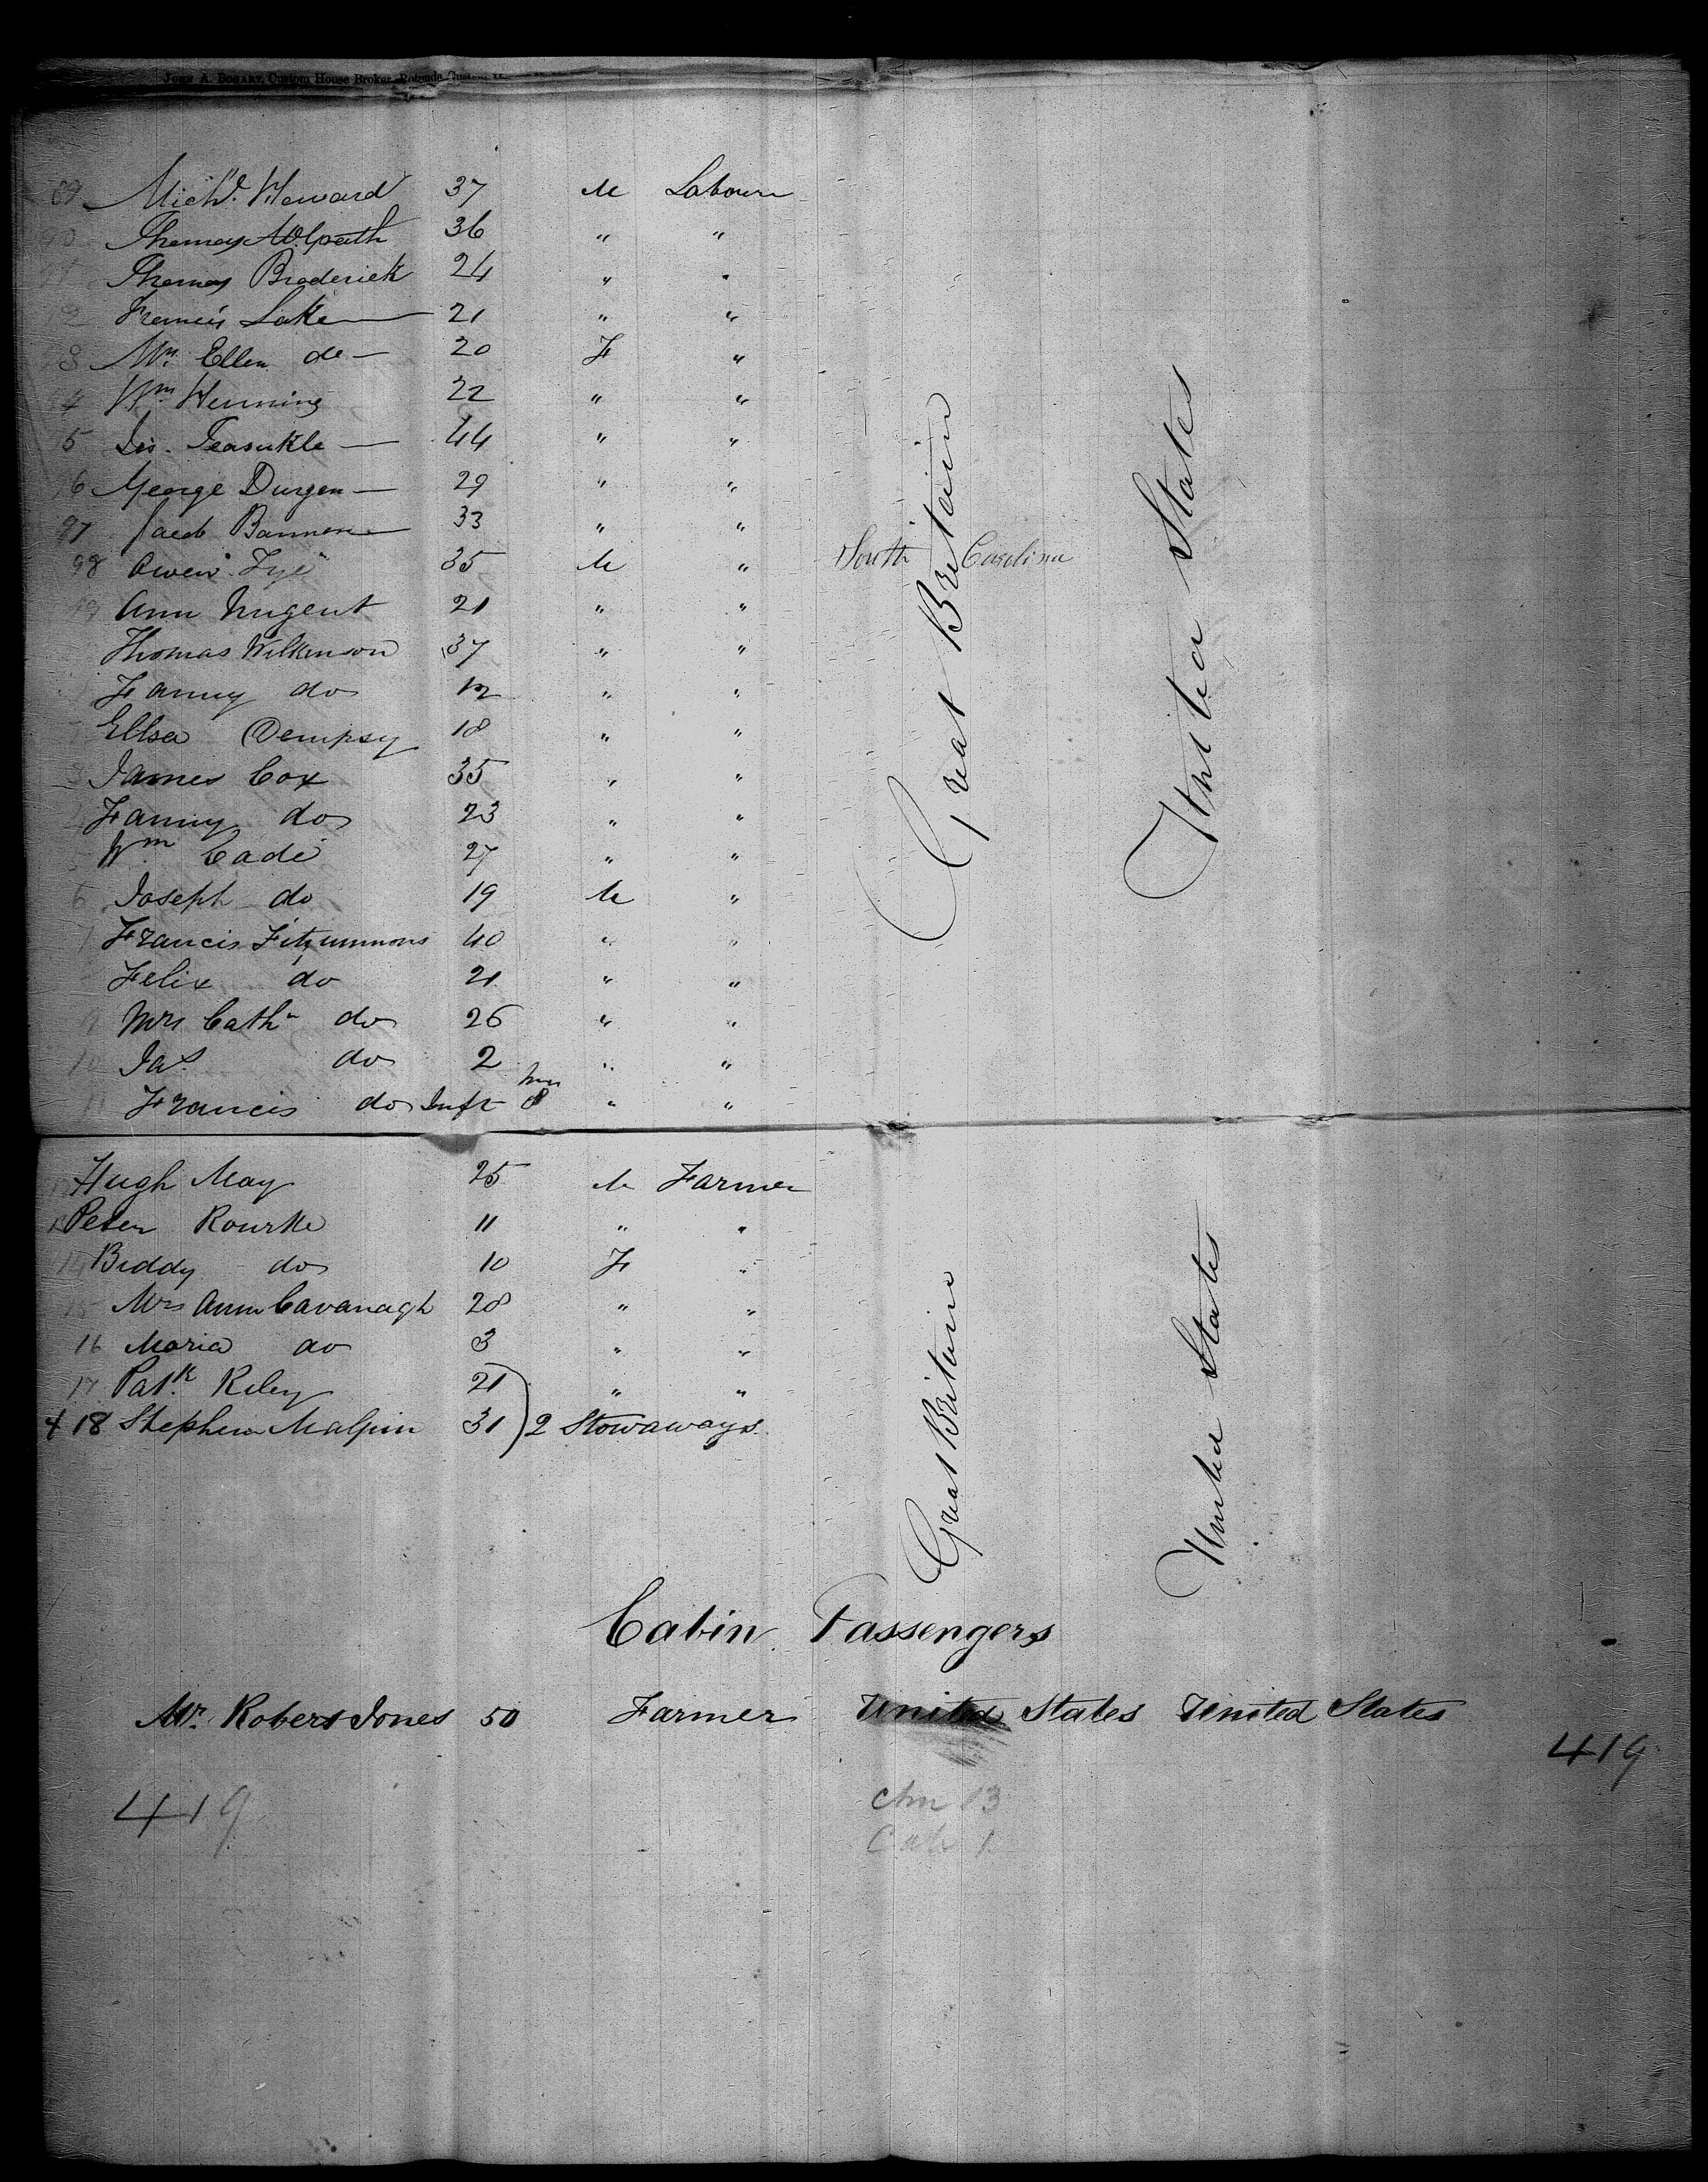 JOHN A. BOGART, Custom House Broker, Rotunda Custom
89 Mich'l. Howard 37 M Labourer
90 Thomas 36 " "
91 Thomas Broderick 24 " "
2 Francis Lake — 21 " "
3 Mrs. Ellen do — 20 F "
4 Wm Henning 22 " "
5 Jas. — 44 " "
96 George Durgen — 29 " "
97 Jacob Bannon — 33 " "
98 Owen Tye 35 M " South Carolina
99 Ann Nugent 21 " "
Thomas Wilkinson 37 " "
1 Fanny do 12 " "
Ellsa Dempsy 18 " "
3 James Cox 35 " "
4 Fanny do 23 " "
Wm Cade 27 " "
6 Joseph do 19 M "
7 Francis Fitzummons 40 " "
Felix do 21 " "
9 Mrs Cathn do 26 " "
10 Jas do 2 " "
11 Francis do Inft 8 " "
Great Britain
United States
Hugh May 25 M Farmer
13 Peter Rourke 11 " "
14 Biddy do 10 F "
15 Mrs Ann Cavanagh 28 " "
16 Maria do 3 " "
17 Patk. Riley 21 " "
418 Stephen Malpin 31 ) 2 Stowaways.
Great Britain
United States
Cabin Passengers
Mr. Robert Jones 50 Farmer United States United States
419
419
13
Cab 1